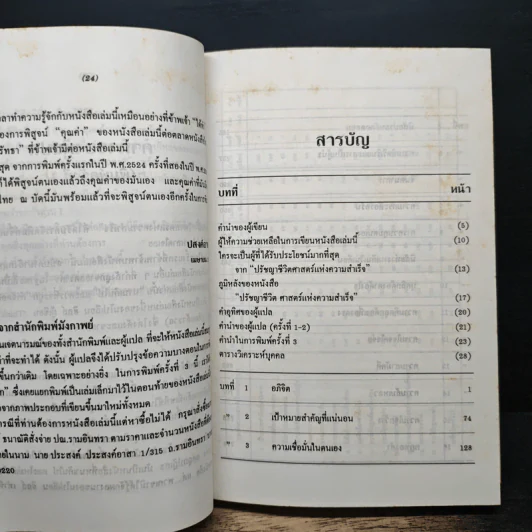 (24)
ลาทำความรู้จักกับหนังสือเล่มนี้เหมือนอย่างที่ข้าพเจ้า
องการพิสูจน์ "คุณค่า" ของหนังสือเล่มนี้ต่อตลาดหนังสือที่
ที่ข้าพเจ้ามีต่อหนังสือเล่มนี้
สุด จากการพิมพ์ครั้งแรกในปี พ.ศ.2524 ครั้งที่สองในปี
ได้พิสูจน์ตนเองแล้วถึงคุณค่าของมันเอง และคุณค่าที่มัน
ไทย ณ บัดนี้มันพร้อมแล้วที่จะพิสูจน์ตนเองอีกครั้งในการ
จากสำนักพิมพ์มังกาพย์
นเจตนารมณ์ของทั้งสำนักพิมพ์และผู้แปล ที่จะให้หนังสือเล่มนี้
ที่จะทำได้ ดังนั้น ผู้แปลจึงได้ปรับปรุงข้อความบางตอนใน
ขึ้นกว่าเดิม โดยเฉพาะอย่างยิ่ง ในการพิมพ์ครั้งที่ 3 นี้
ซึ่งเคยแยกพิมพ์เป็นเล่มเล็กมาไว้ในตอนท้ายของหนังสือเล่ม
จากภาพประกอบที่เขียนขึ้นมาใหม่ทั้งหมด
รณีที่ท่านต้องการหนังสือเล่มนี้แต่หาซื้อไม่ได้ กรุณาสั่งซื้อ
ธนาณัติสั่งจ่าย ปณ.รามอินทรา ตามราคาและจำนวนหนังสือที่
ายในนาม นาย ประสงค์ ประสงค์อาสา 1/315 ถ.รามอินทรา
0220
สารบัญ
บทที่ หน้า
คำนำของผู้เขียน (5)
ผู้ให้ความช่วยเหลือในการเขียนหนังสือเล่มนี้ (10)
ใครจะเป็นผู้ที่ได้รับประโยชน์มากที่สุด
จาก "ปรัชญาชีวิต ศาสตร์แห่งความสำเร็จ" (13)
ภูมิหลังของหนังสือ
"ปรัชญาชีวิต ศาสตร์แห่งความสำเร็จ" (17)
คำอุทิศของผู้แปล (20)
คำนำของผู้แปล (ครั้งที่ 1-2) (21)
คำนำในการพิมพ์ครั้งที่ 3 (23)
ตารางวิเคราะห์บุคคล (28)
บทที่ 1 อภิจิต 1
" 2 เป้าหมายสำคัญที่แน่นอน 74
" 3 ความเชื่อมั่นในตนเอง 128